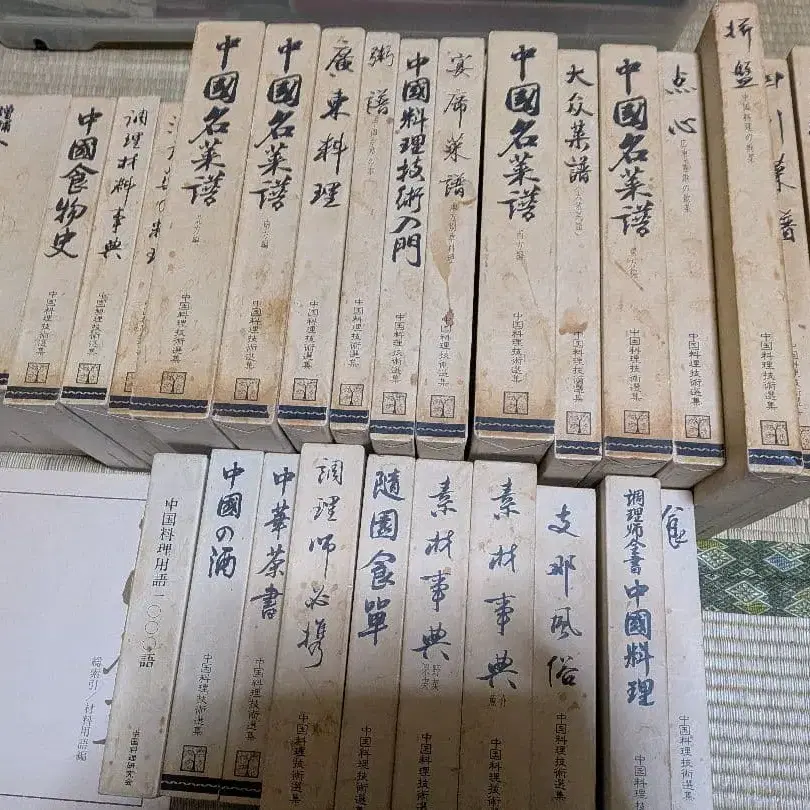 中國食物史
中国料理技術選集
調理材料事典
中国料理技術選集
中國名菜譜
北方編
中国料理技術選集
中國名菜譜
南方編
中国料理技術選集
廣東料理
中国料理技術選集
粥譜
中国料理技術選集
中國料理技術入門
中国料理技術選集
宴席菜譜
中国料理技術選集
中國名菜譜
西方編
中国料理技術選集
大众菜譜
中国料理技術選集
中國名菜譜
東方編
中国料理技術選集
点心
中国料理技術選集
拼盤
中国料理の前菜
中国料理技術選集
中国料理技術選集
中国料理用語一〇〇〇語
中国料理研究会
中國の酒
中国料理技術選集
中華茶書
中国料理技術選集
調理師必携
中国料理技術選集
随園食單
中国料理技術選集
素材事典
中国料理技術選集
素材事典
魚介
中国料理技術選集
支那風俗
中国料理技術選集
調理師全書
中國料理
中国料理技術
食
中国料理技術選集
総索引/材料用語編